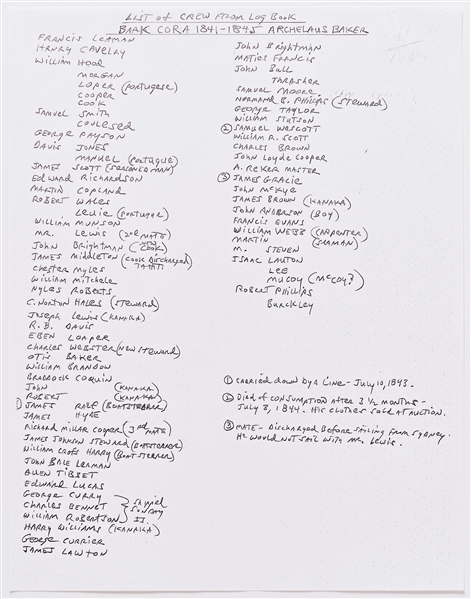 LIST of CREW FROM LOG BOOK
BARK CORA 1841-1845 ARCHELAUS BAKER
FRANCIS LEAMAN
HENRY CAVELRY
WILLIAM HOOD
MORGAN
LOPER (PORTUGESE)
COOPER
COOK
SAMUEL SMITH
COULESED
GEORGE PAYSON
DAVIS JONES
MANUEL (PORTUGUE)
JAMES SCOTT (SEASONED MAN)
EDWARD RICHARDSON
MARTIN COPLAND
ROBERT WALES
LEWIE (PORTUGER)
WILLIAM MUNSON
MR. LEWIS (2nd MATE)
JOHN BRIGHTMAN (NEW COOK)
JAMES MIDDLETON (COOK DISCHARGED TAHITI)
CHESTER MYLES
WILLIAM MITCHELE
MYLES ROBERTS
C. NORTON HALES (STEWARD)
JOSEPH LEWIS (KANAKA)
R.B. DAVIS
EBEN LOAPER
CHARLES WEBSTER (NEW STEWARD)
OTIS BAKER
WILLIAM BRANDOW
BRADDOCK COQUIN
JOHN (KANAKA)
ROBERT (KANAKA)
① JAMES (BOATSTEERER)
JAMES HYDE
RICHARD MILLAR COOPER (3rd MATE)
JAMES JOHNSON STEWARD
WILLIAM CROSS HARRY (BOATSTEERER)
JOHN BALE LEAMAN
ALLEN TIBBET
EDWARD LUCAS
GEORGE CURRY
CHARLES BENNET } SHIPPED SUNDAY IS.
WILLIAM ROBERTSON
HARRY WILLIAMS (KANAKA)
GEORGE CURRIER
JAMES LAWTON
JOHN BRIGHTMAN
MATIES FRANCIS
JOHN BULL
THRASHER
SAMUEL MOORE
NORMAND B. PHILLIPS (STEWARD)
GEORGE TAYLOR
WILLIAM STETSON
② SAMUEL WESCOTT
WILLIAM R. SCOTT
CHARLES BROWN
JOHN LOYDE COOPER
A. REKER MASTER
③ JAMES GRACIE
JOHN McKYE
JAMES BROWN (KANAKA)
JOHN ANDERSON (BOY)
FRANCIS EVANS
WILLIAM WEBB (CARPENTER)
MARTIN (SEAMAN)
M. STEVEN
ISAAC LAUTON
LEE
MUCOY (McCOY?)
ROBERT PHILLIPS
BUNCKLEY
① CARRIED DOWN BY A LINE - JULY 10, 1843.
② DIED OF CONSUMPTION AFTER 3 1/2 MONTHS -
JULY 8, 1844. HIS CLOTHES SOLD AT AUCTION.
③ MATE - DISCHARGED BEFORE SAILING FROM SYDNEY.
HE WOULD NOT SAIL WITH MR. LEWIS.